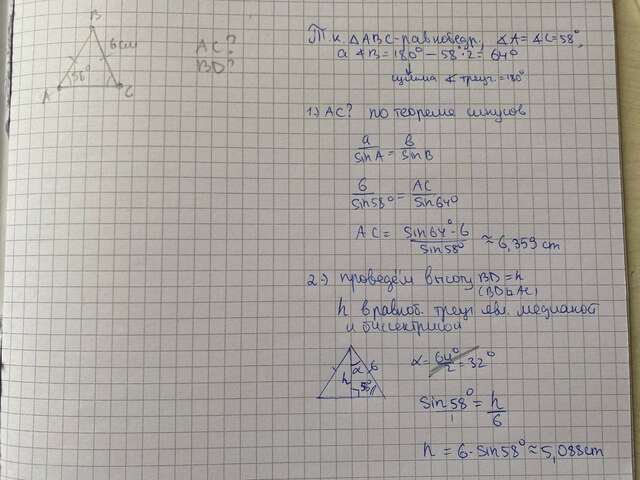 B
6 cm
58°
A
C
AC?
BD?
Т.к. △ABC-равнобедр., ∡A = ∡C = 58°,
а ∡B = 180° – 58°·2 = 64°
↓
сумма ∡ треуг. = 180°
1.) AC? по теореме синусов
a/sinA = b/sinB
6/sin58° = AC/sin64°
AC = sin64°·6/sin58° ≈ 6,359 cm
2.) проведём высоту BD = h
(BD⊥AC)
h в равноб. треуг. явл. медианой
и биссектрисой
α
6
h
58°
α = 64°/2 = 32°
sin58°/1 = h/6
h = 6·sin58° ≈ 5,088cm